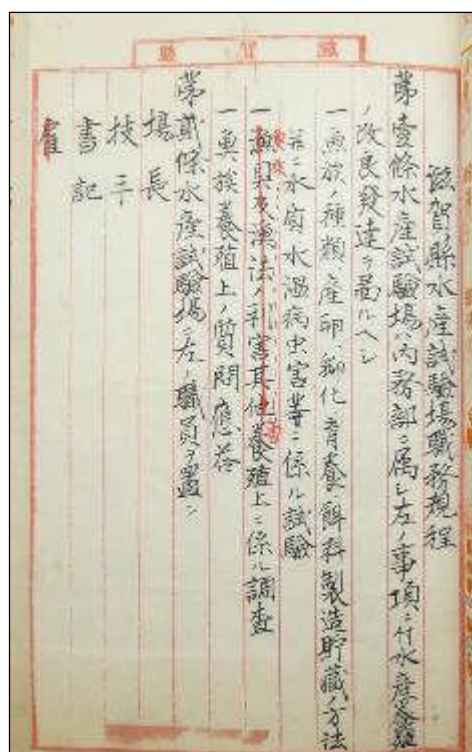 滋賀縣
滋賀縣水産試驗場職務規程
第壹條水産試驗場ハ内務部ニ属シ左ノ事項ニ付水産養殖
ノ改良發達ヲ圖ルヘシ
一魚族ノ種類産卵孵化育養餌料製造貯藏ノ方法
并ニ水質水温病虫害等ニ係ル試驗
一漁具及漁法ノ利害其他養殖上ニ係ル調査
一魚族養殖上ノ質問應答
第貳條水産試驗場ニ左ノ職員ヲ置ク
場長
技手
書記
雇